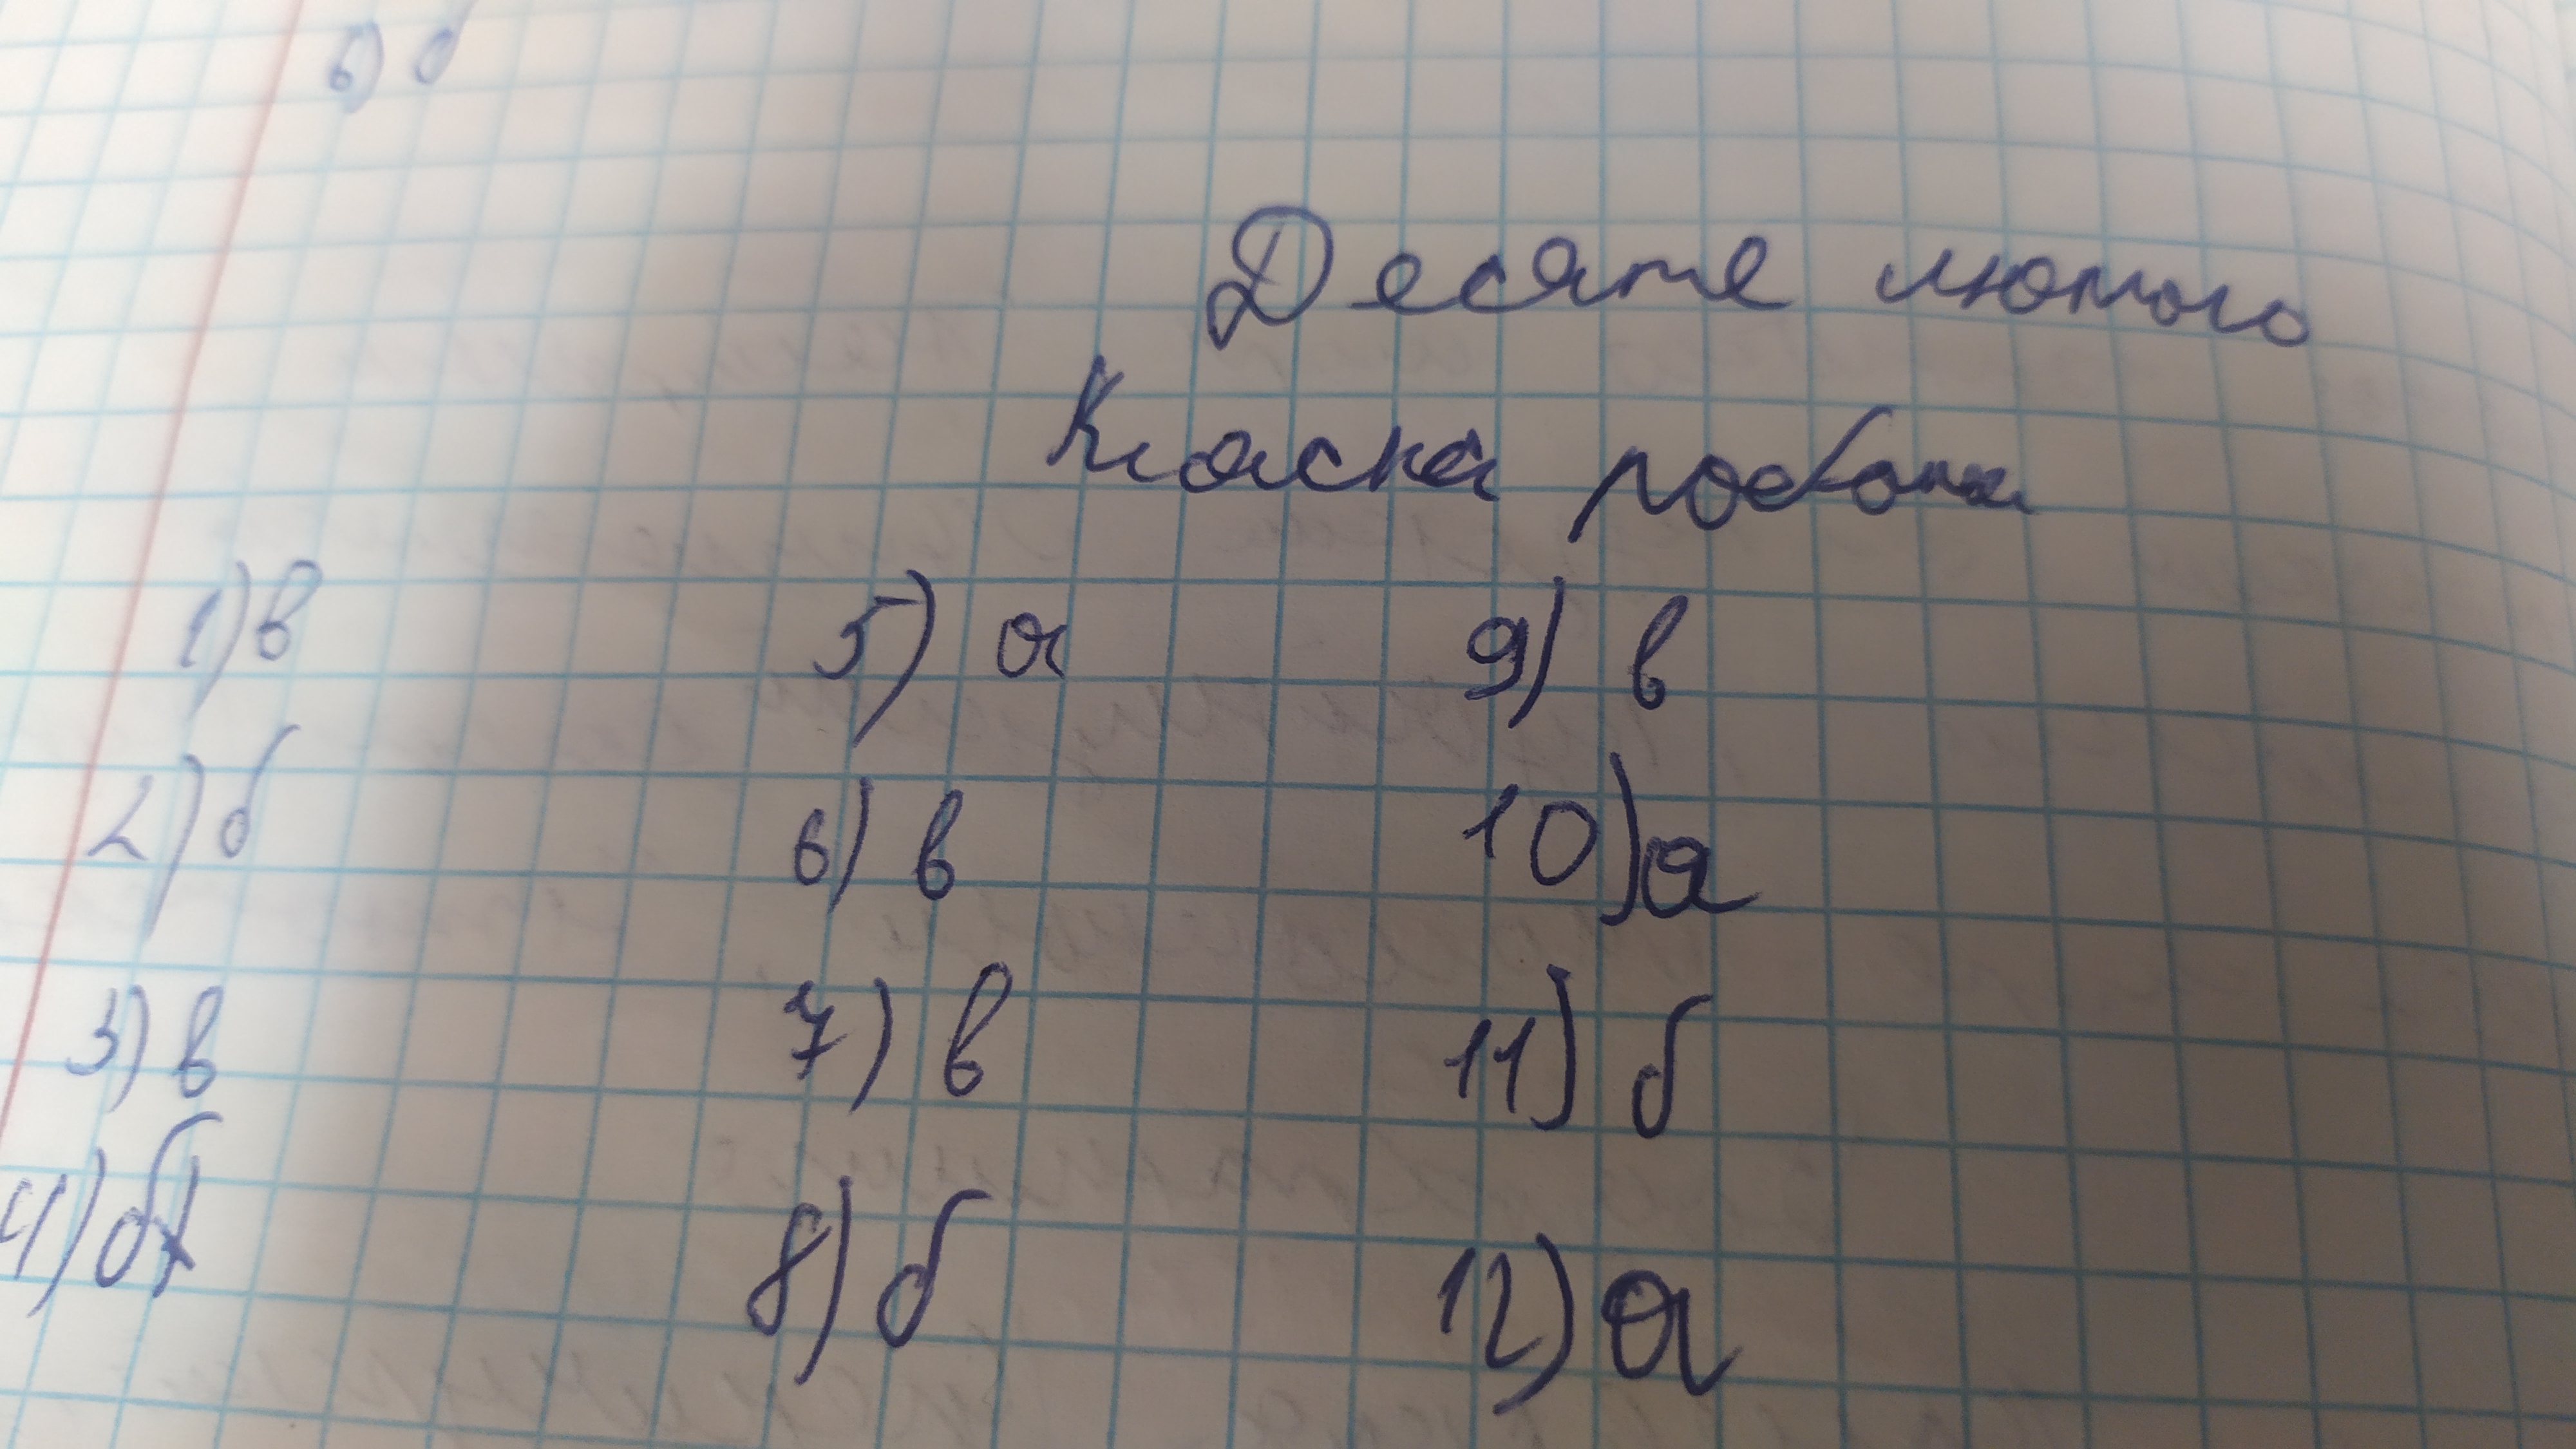 6) б
Десяте лютого
Класна робота
1) в 5) а 9) в
2) б 6) в 10) а
3) в 7) в 11) б
4) б 8) б 12) а